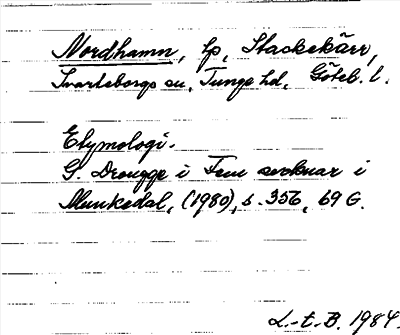 Nordhamn, lp, Stackekärr,
Svarteborgs sn, Tunge hd, Göteb. l.
Etymologi.
G. Drougge i Fem socknar i
Munkedal, (1980), s. 356, 69 G.
L-t-B. 1984.